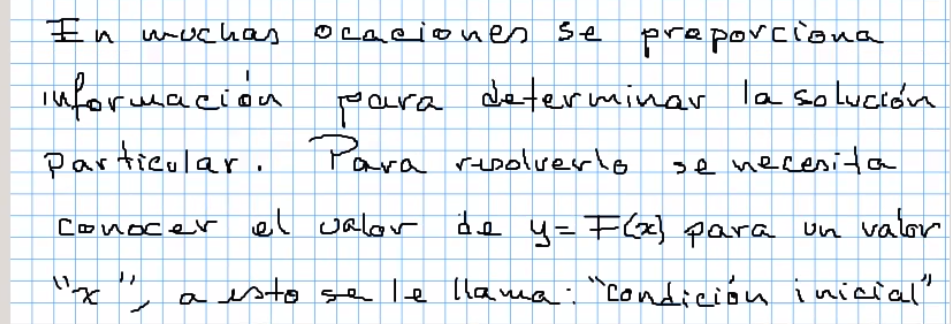 En muchas ocaciones se preporciona
información para determinar la solución
particular. Para resolverlo se necesita
conocer el valor de y=F(x) para un valor
"x", a esto se le llama: "condición inicial"